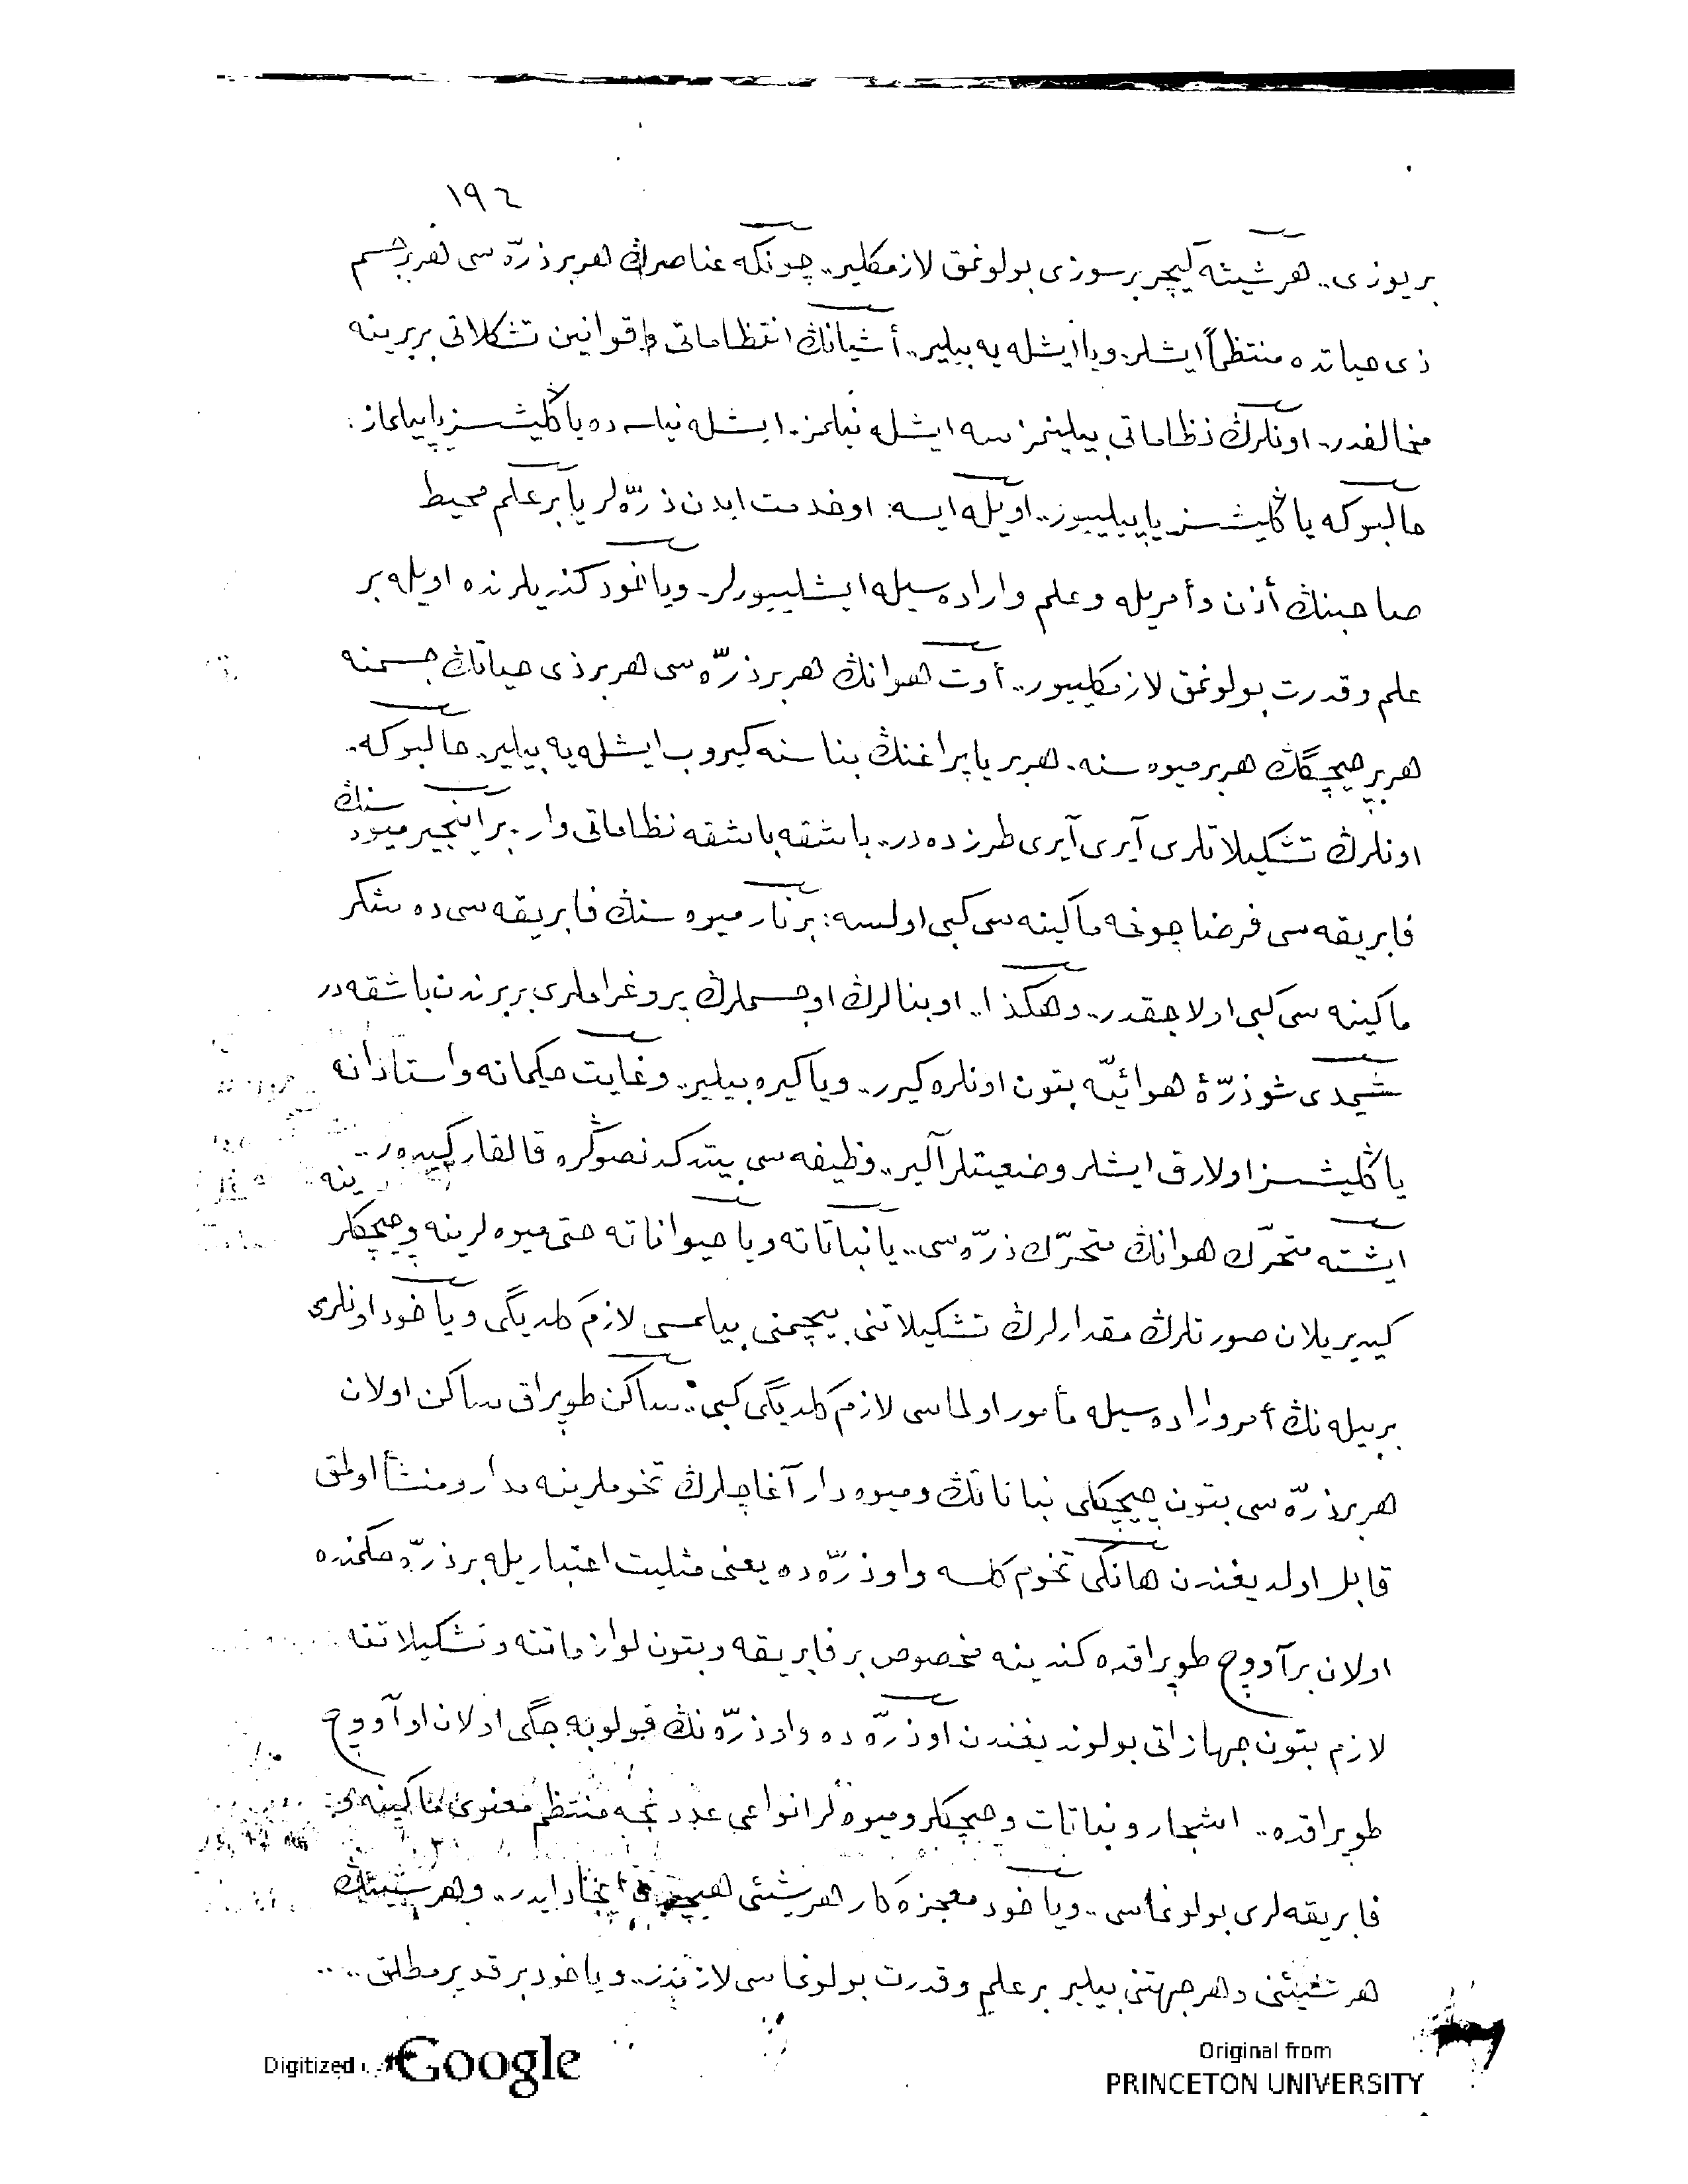 ١٩٢
بر یوزی.. هر شیئه کیچر بر سوزی بولونمق لازمکلیر.. چونکه عناصرڭ هر بر ذرّه سی هر بر جسم
ذی حیاتده منتظماً ایشلر. ویا ایشله یه بیلیر.. أشیانڭ انتظاماتی و قوانین تشکلاتی بربرینه
مخالفدر.. اونلرڭ نظاماتی بیلینمزسه ایشله نیلمز. ایشله نیلسه ده یاڭلیشسز یاپیلماز:
حالبوکه یاڭلیشسز یاپیلییور.. اویله ایسه: او خدمت ایدن ذرّه لر یا بر علم محیط
صاحبنڭ أذن و أمریله و علم و اراده سیله ایشلییورلر. ویاخود کندیلرنده اویله بر
علم و قدرت بولونمق لازمکلییور.. أوت هوانڭ هر بر ذرّه سی هر بر ذی حیاتڭ جسمنه
هر بر چیچگڭ هر بر میوه سنه. هر بر یاپراغنڭ بناسنه کیروب ایشله یه بیلیر. حالبوکه..
اونلرڭ تشکیلاتلری آیری آیری طرزده در.. باشقه باشقه نظاماتی وار. بر اینجیر میوه سنڭ
فابریقه سی فرضا چوخه ماکینه سی کبی اولسه: بر نار میوه سنڭ فابریقه سی ده شکر
ماکینه سی کبی اولاجقدر.. وهکذا.. او بنالرڭ او جسملرڭ پروغراملری بربرندن باشقه در
شیمدی شو ذرّهٔ هوائیّه بتون اونلره کیرر.. ویا کیره بیلیر.. و غایت حکیمانه و استادانه
یاڭلیشسز اولارق ایشلر وضعیتلر آلیر.. وظیفه سی بیتدکدنصوڭره قالقار کیدر..
ایشته متحرّك هوانڭ متحرّك ذرّه سی.. یا نباتاته ویا حیواناته حتی میوه لرینه و چیچکلرینه
کیدیریلان صورتلرڭ مقدارلرڭ تشکیلاتنی بیچیمنی بیلمسی لازم کلدیگی ویاخود اونلری
بر بیله نڭ أمر و اراده سیله مأمور اولماسی لازم کلدیگی کبی: ساکن طوپراق ساکن اولان
هر بر ذرّه سی بتون چیچکلی نباتاتڭ و میوه دار آغاچلرڭ تخوملرینه مدار و منشأ اولمق
قابل اولدیغندن هانکی تخوم کلسه و او ذرّه ده یعنی مثلیت اعتباریله بر ذرّه حکمنده
اولان بر آووچ طوپراقده کندینه مخصوص بر فابریقه و بتون لوازماتنه و تشکیلاتنه
لازم بتون جهازاتی بولوندیغندن او ذرّه ده و او ذرّه نڭ قولوبه جگی اولان او آووچ
طوپراقده.. اشجار و نباتات و چیچکلر و میوه لر انواعی عددنجه منتظم معنوی ماکینه و
فابریقه لری بولونماسی.. ویاخود معجزه کار هر شیئی هیچدن ایجاد ایدر.. و هر شیئڭ
هر شیئنی و هر جهتنی بیلیر بر علم و قدرت بولونماسی لازمدر.. ویاخود بر قدیر مطلق....
Digitized Google
Original from
PRINCETON UNIVERSITY